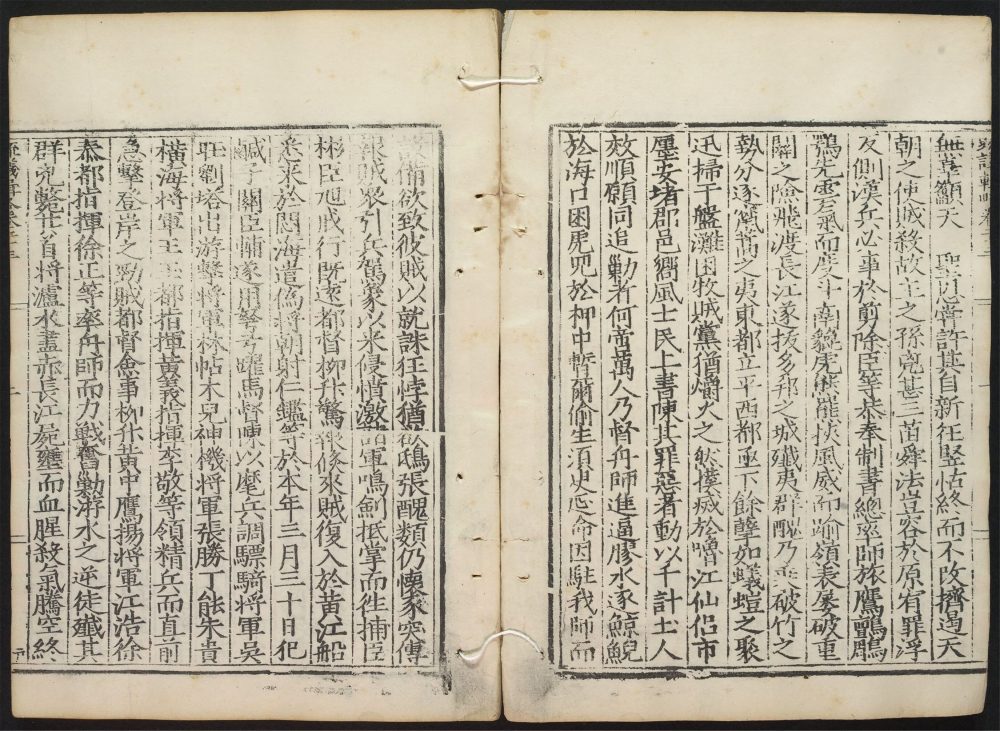 無辜籲天 聖慈嘗許其自新狂竪怙終而不改擠遏天
朝之使戕殺故王之孫兇甚三苗舜法豈容於原宥罪浮
反側漢兵必事於剪除臣等恭奉制書總率師旅鷹鸇鵰
鶚先雲氣而度斗南貔虎熊羆挾風威而踰嶺表屢破重
關之險飛渡長江遂拔多邦之城殲夷群醜乃乘破竹之
執分逐竄蒿之夷東都立平西都亟下餘孽如蟻螘之聚
迅掃于盤灘困牧賊黨猶爝火之然撲滅於嚕江仙侶市
㕓安堵郡邑嚮風士民上書陳其罪惡者動以千計土人
效順願同追勦者何啻萬人乃督舟師進逼膠水逐鯨鯢
於海口困虎兕於柙中暫爾偷生須臾忘命因駐我師而
備欲致彼賊以就誅狂悖猶鴟張醜類仍懷豕突傳
報賊衆引兵駕象以來侵憤激諸軍鳴劍抵掌而往捕臣
彬臣旭既行既遠都督柳升驚報倏來賊復入於黃江船
悉來於悶海遣偽將胡射仁鑑等於本年三月三十日犯
鹹子關臣輔遂用弩矢躍馬督陳以麾兵調驃騎將軍吳
旺劉塔出游擊將軍林帖木兒神機將軍張勝丁能朱貴
橫海將軍王 王都指揮黃義指揮李敬等領精兵而直前
急擊登岸之勁賊都督僉事柳升黃中鷹揚將軍江浩徐
泰都指揮徐正等率舟師而力戰奮勦游水之逆徒殲其
群兇斃 首將瀘水盡赤長江屍壅而血腥殺氣騰空終